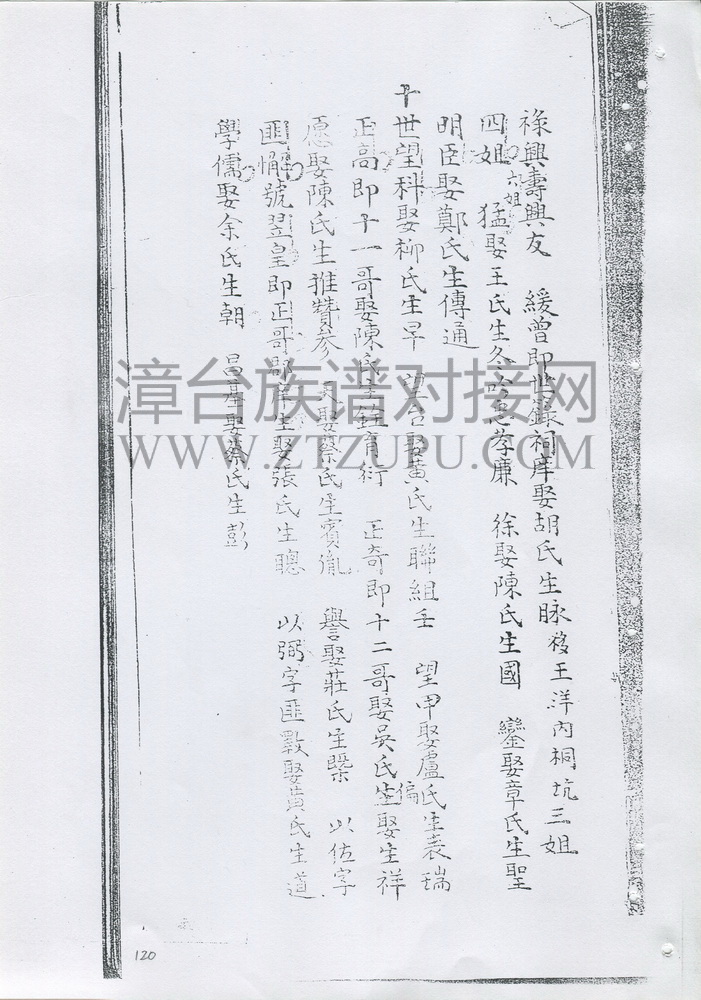 祿興壽興友　緩曾即世錄祠庠娶胡氏生脉移王洋內桐坑三姐
四姐　六姐　猛娶王氏生冬 惠孝廉　徐娶陳氏生國　鑾娶章氏生聖
明臣娶鄭氏生傳通
十世望科娶柳氏生早　望台娶黃氏生聯組壬　望甲娶盧氏生袁瑞
正高即十一哥娶陳氏生 育衍　正奇即十二哥娶吳氏生偏娶生祥
愿娶陳氏生推贊參　娶蔡氏生賓胤　譽娶莊氏生槩　以佐字
匪 號翌皇即正哥郡庠生娶張氏生聰　以弼字匪 娶黃氏生道
學儒娶余氏生朝　昌 娶蔡氏生彭
漳台族谱对接网
WWW.ZTZUPU.COM
120